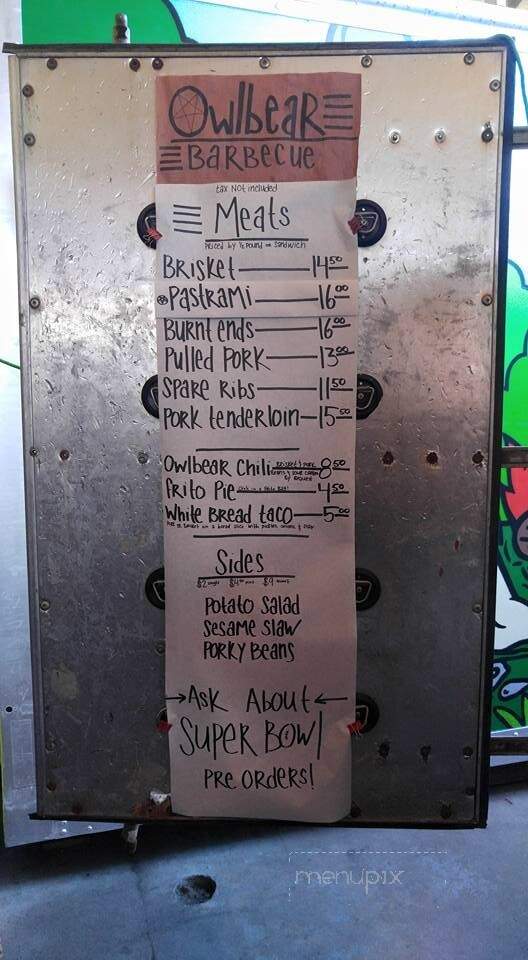 Owlbear
Barbecue
tax NOT included
Meats
Priced by ½ pound or Sandwich
Brisket 14 50
Pastrami 16 00
Burnt ends 16 00
Pulled Pork 13 00
Spare Ribs 11 50
Pork tenderloin 15 50
Owlbear Chili 8 50
Frito Pie 4 50
White Bread taco 5 00
Sides
Potato Salad
Sesame Slaw
Porky Beans
→Ask About←
Super Bowl
Pre orders!
menupix